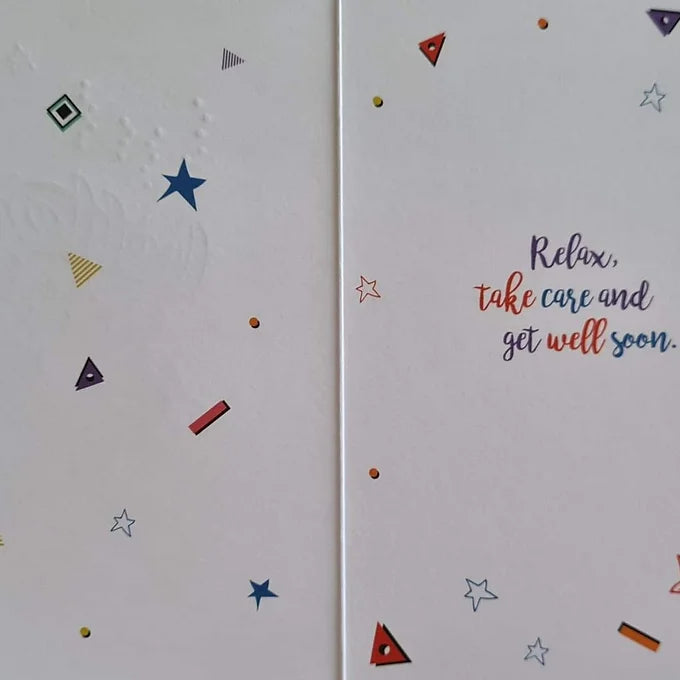 Relax,
take care and
get well soon.